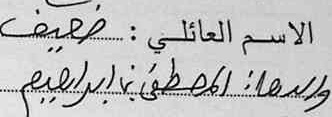 الاسم العائلي : ضعيف
والدها: المصطفى بن ابراهيم